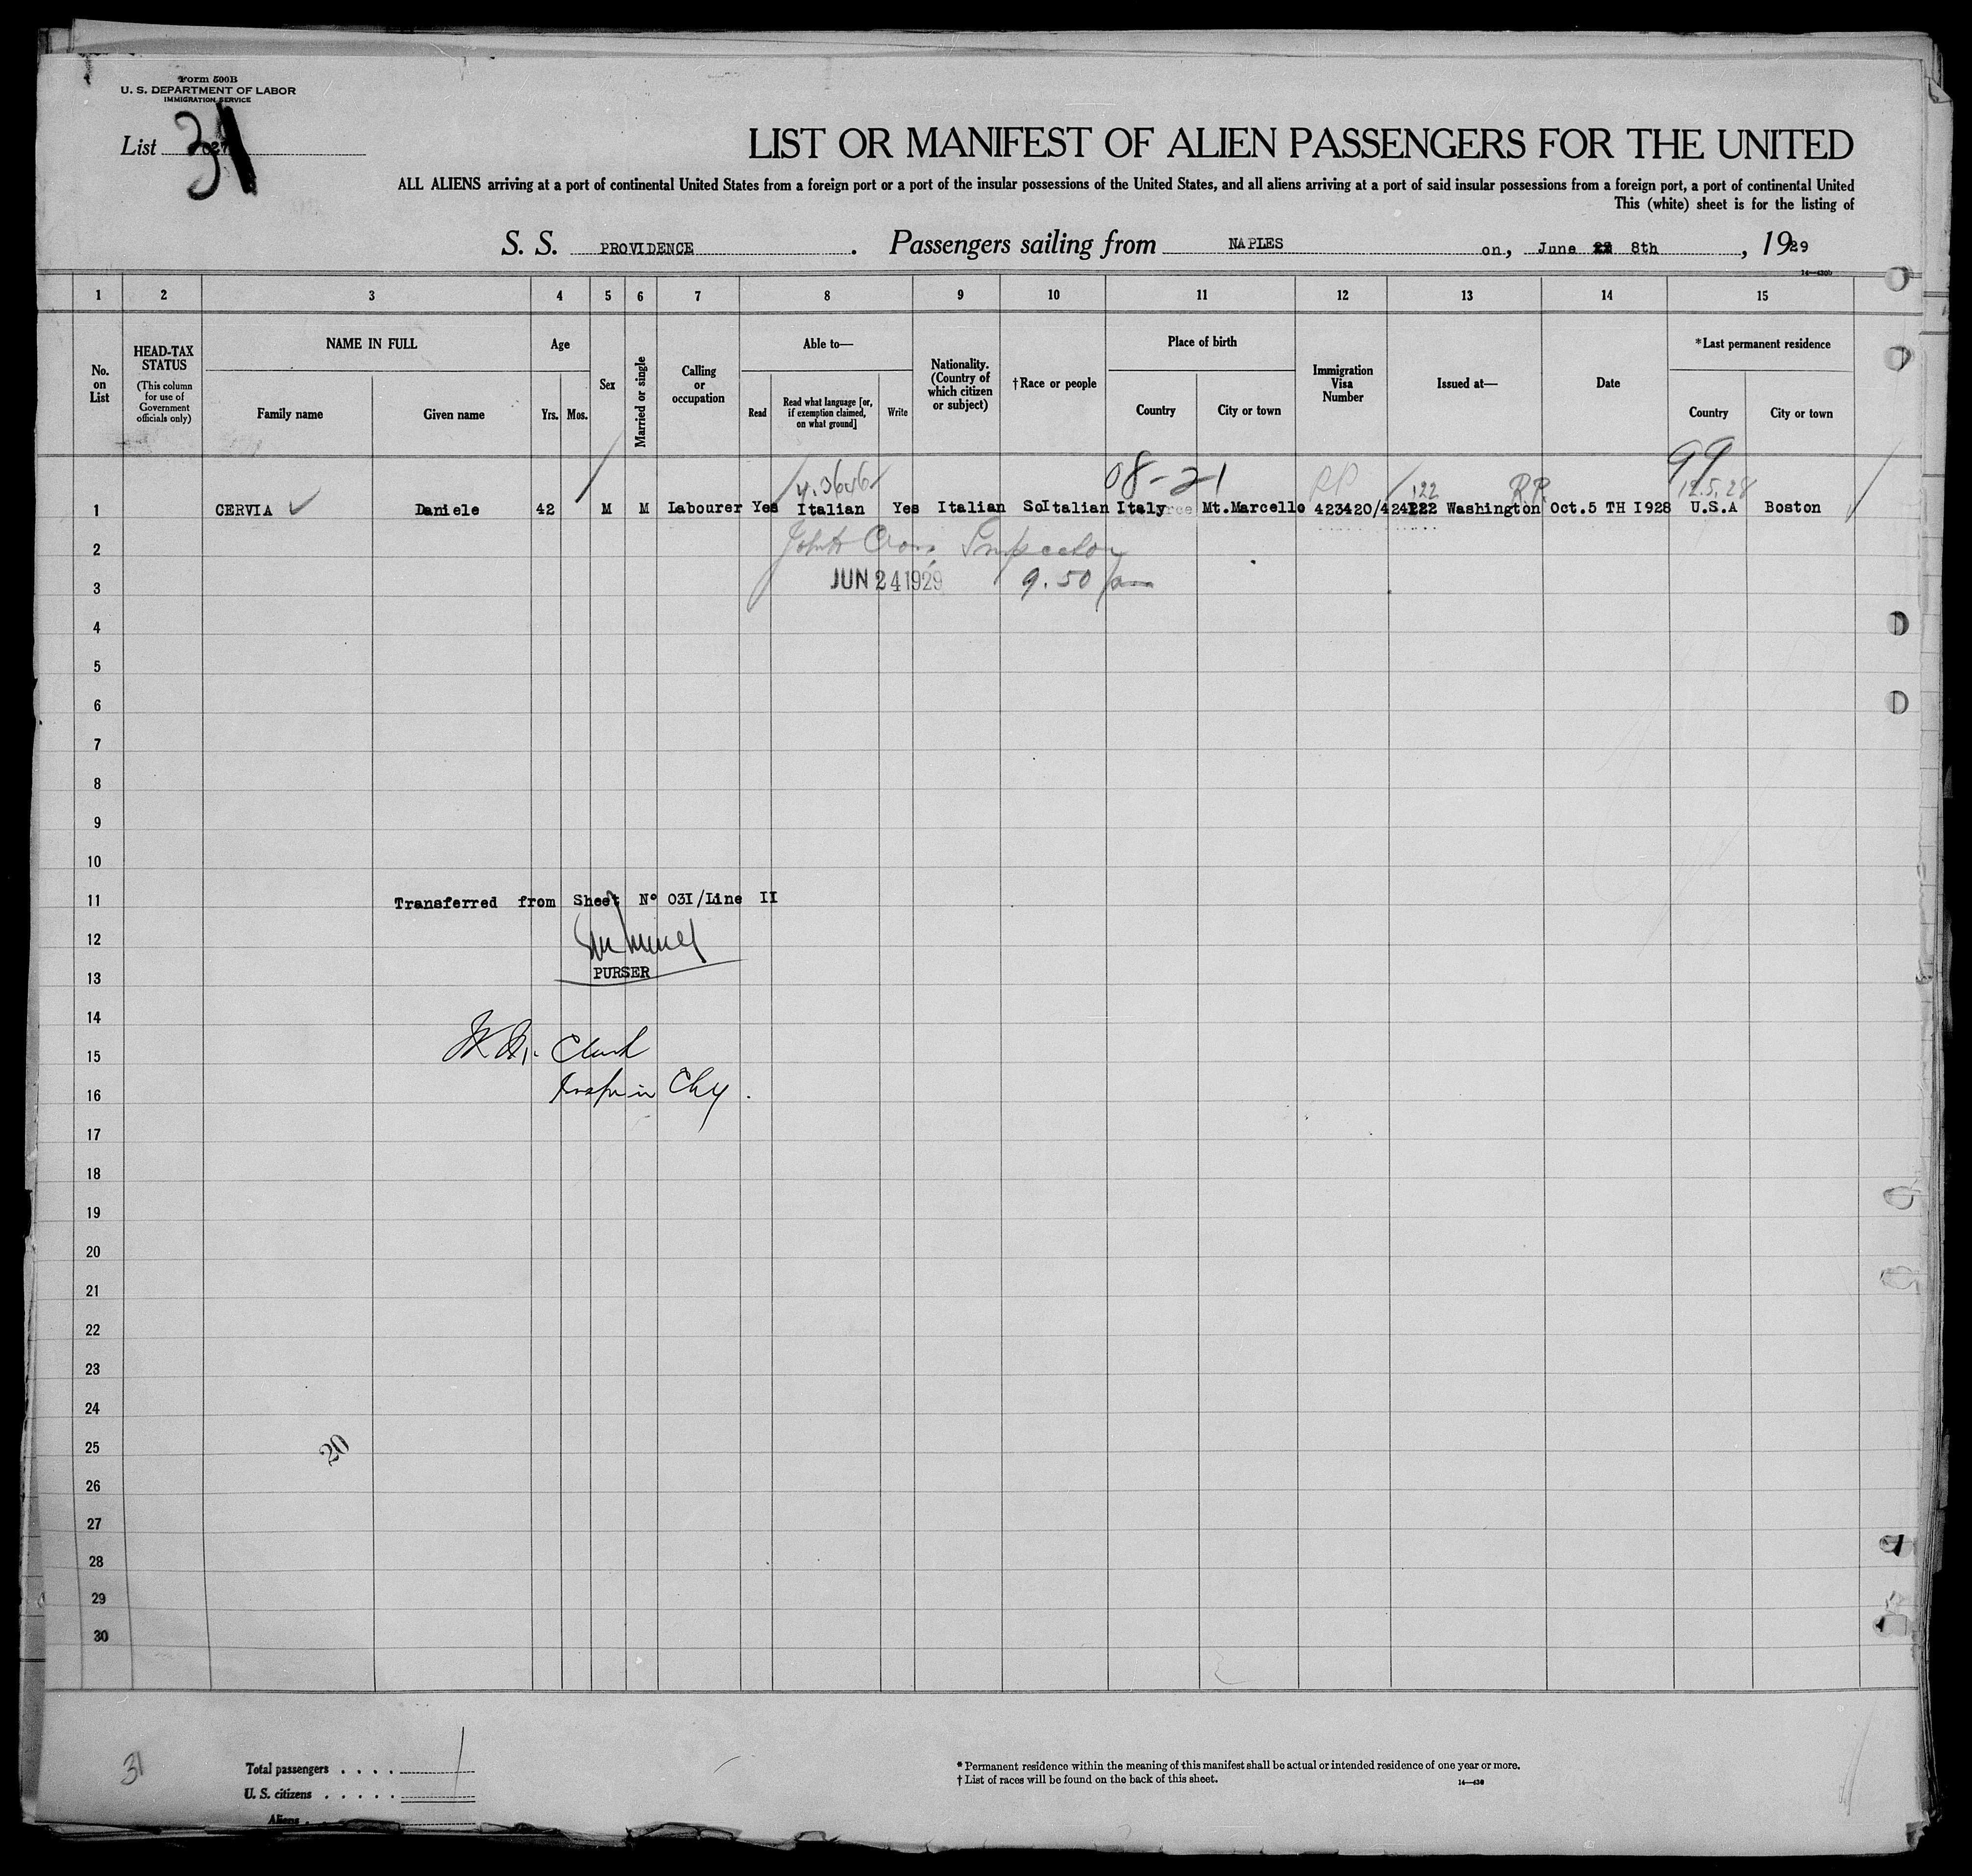 Form 500B
U. S. DEPARTMENT OF LABOR
IMMIGRATION SERVICE
List 31
LIST OR MANIFEST OF ALIEN PASSENGERS FOR THE UNITED
ALL ALIENS arriving at a port of continental United States from a foreign port or a port of the insular possessions of the United States, and all aliens arriving at a port of said insular possessions from a foreign port, a port of continental United
This (white) sheet is for the listing of
S. S. PROVIDENCE. Passengers sailing from NAPLES on, June 8th, 1929
14—430b
1 2 3 4 5 6 7 8 9 10 11 12 13 14 15
No. on List
HEAD-TAX STATUS
(This column for use of Government officials only)
NAME IN FULL
Family name Given name
Age
Yrs. Mos.
Sex
Married or single
Calling or occupation
Able to—
Read
Read what language [or, if exemption claimed, on what ground]
Write
Nationality. (Country of which citizen or subject)
†Race or people
Place of birth
Country City or town
Immigration Visa Number
Issued at—
Date
*Last permanent residence
Country City or town
08-21 99
RP 122 R.P. 12.5.28
1 CERVIA Daniele 42 M M Labourer Yes Italian Yes Italian SoItalian Italy Mt.Marcello 423420/424122 Washington Oct.5 TH 1928 U.S.A Boston
2 Inspector
3 JUN 24 1929 9.50 am
4
5
6
7
8
9
10
11 Transferred from Sheet Nº 031/Line II
12
13 PURSER
14
15 Clark
16
17
18
19
20
21
22
23
24
25 20
26
27
28
29
30
31
Total passengers . . . . 1
U. S. citizens . . . . .
Aliens . .
* Permanent residence within the meaning of this manifest shall be actual or intended residence of one year or more.
† List of races will be found on the back of this sheet.
14—430